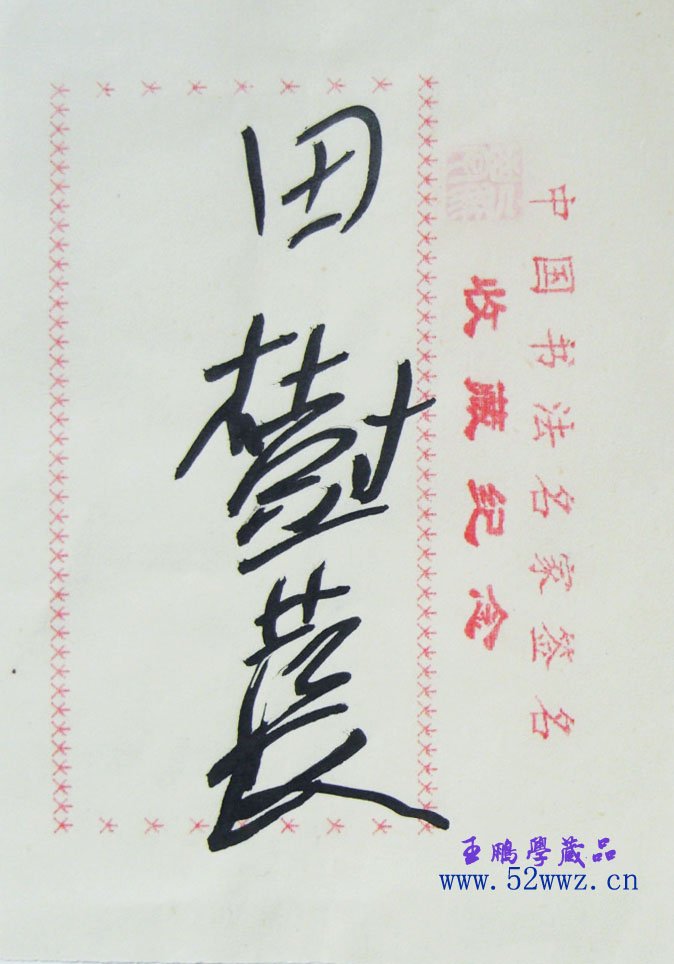 中国书法名家签名
收藏纪念
田樹萇
王鵬學藏品
www.52wwz.cn